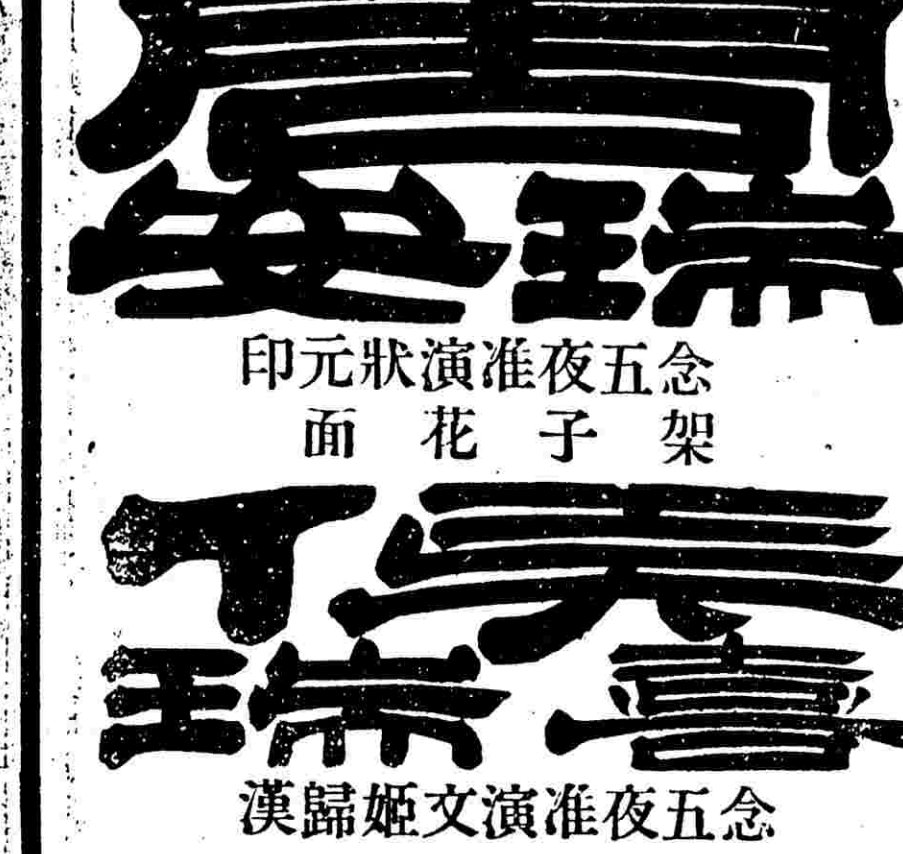 周
瑞安
念五夜准演狀元印
架子花面
侯
喜瑞
念五夜准演文姬歸漢